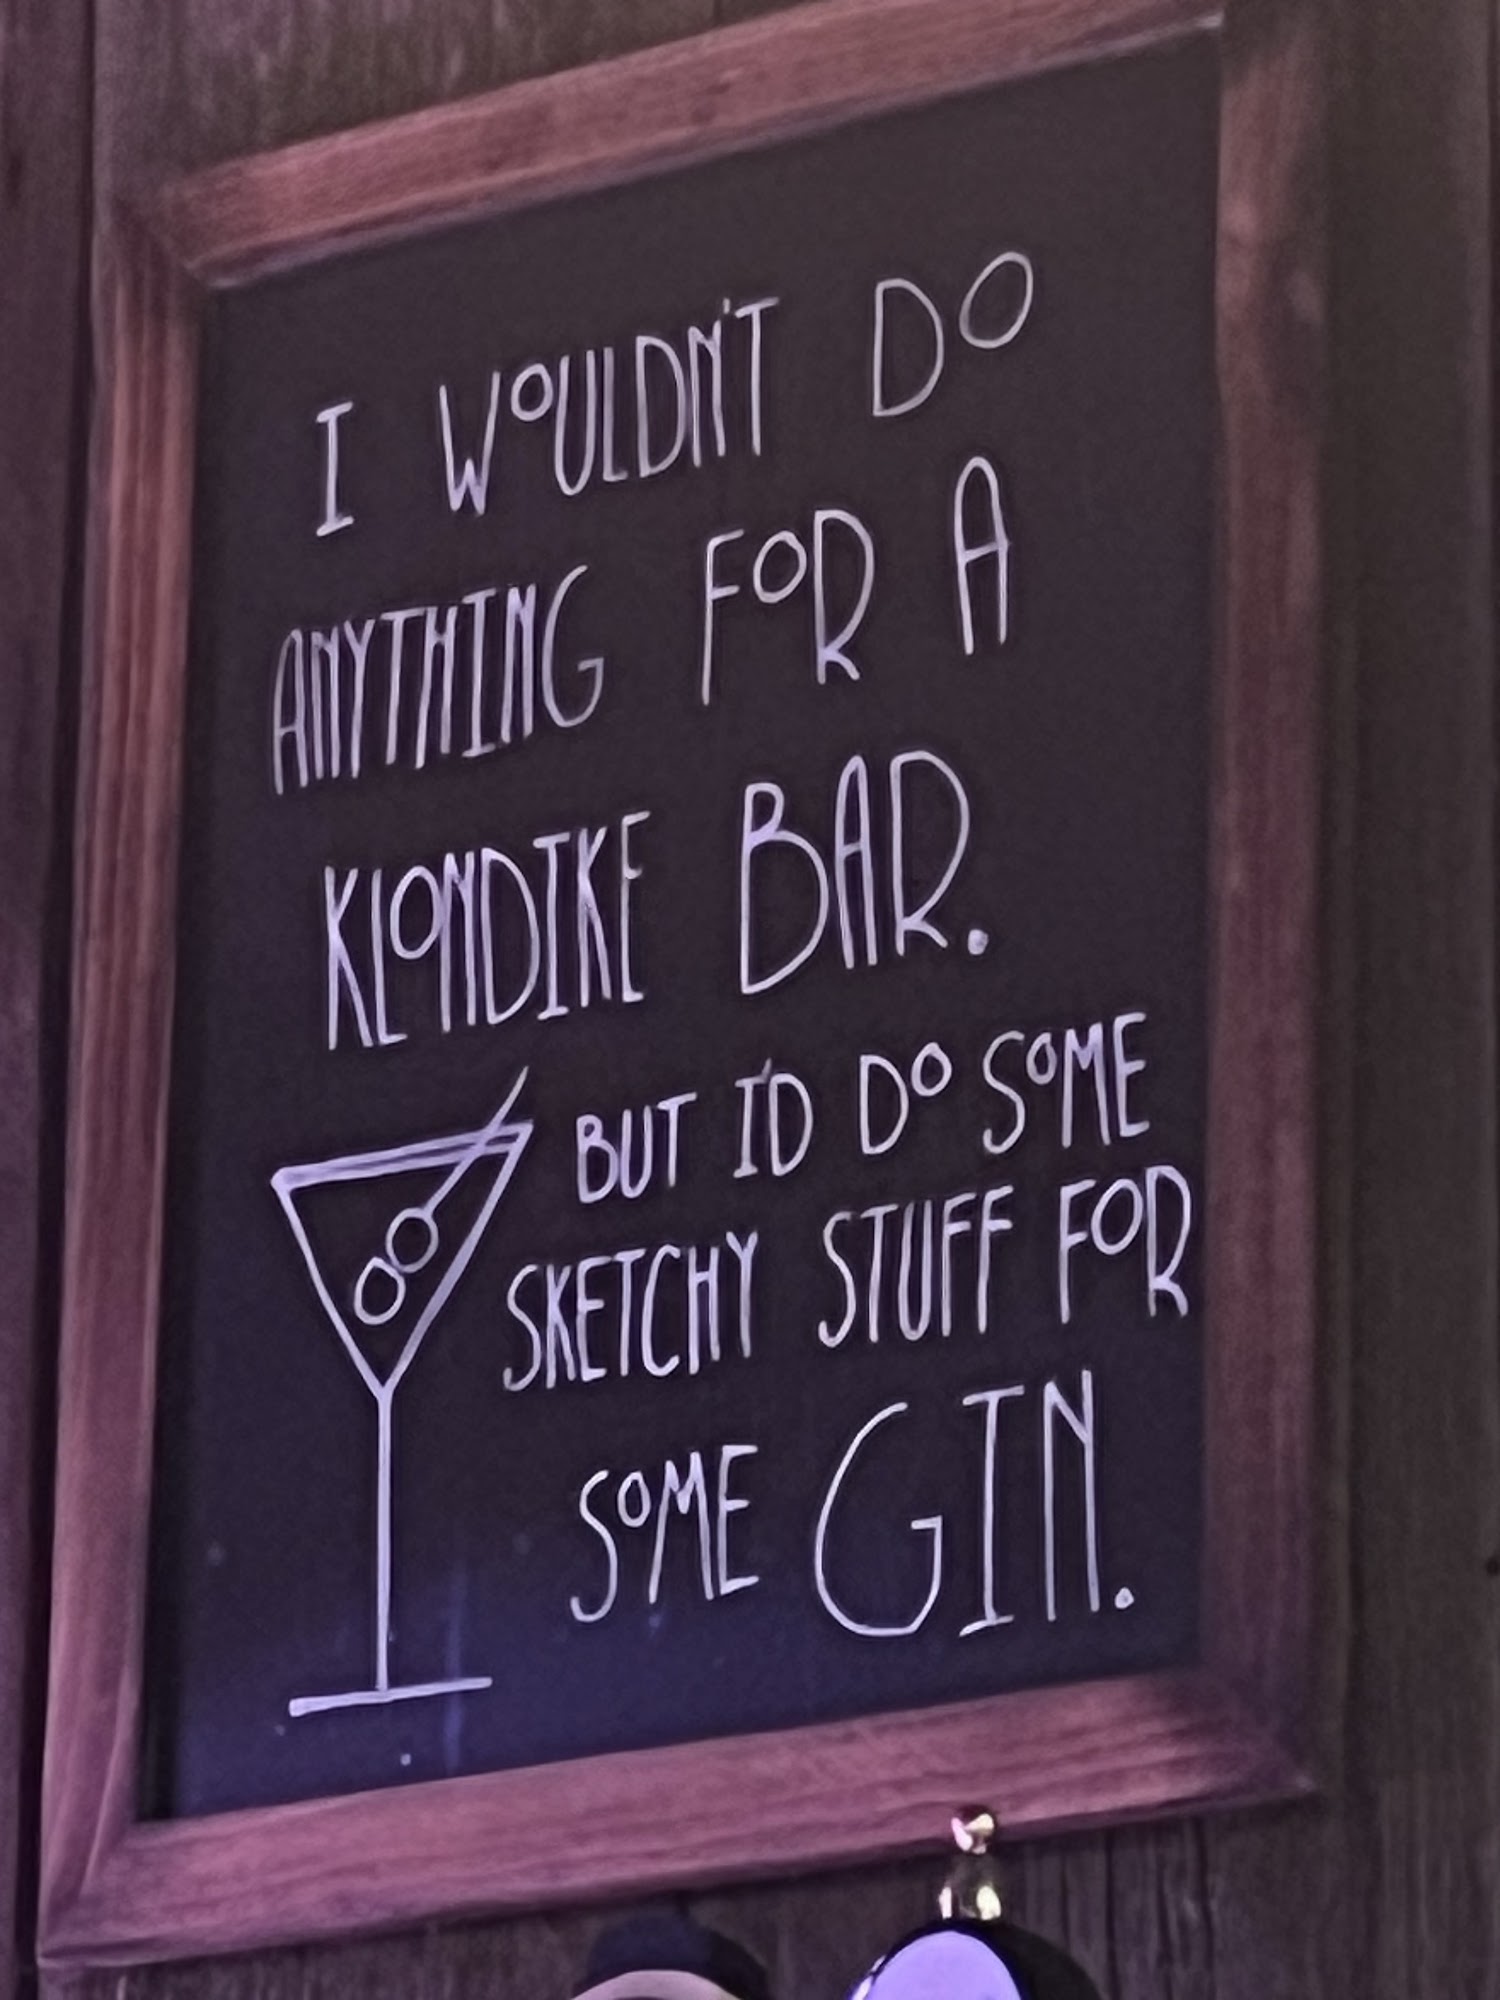 I WOULDN'T DO
ANYTHING FOR A
KLONDIKE BAR.
BUT I'D DO SOME
SKETCHY STUFF FOR
SOME GIN.